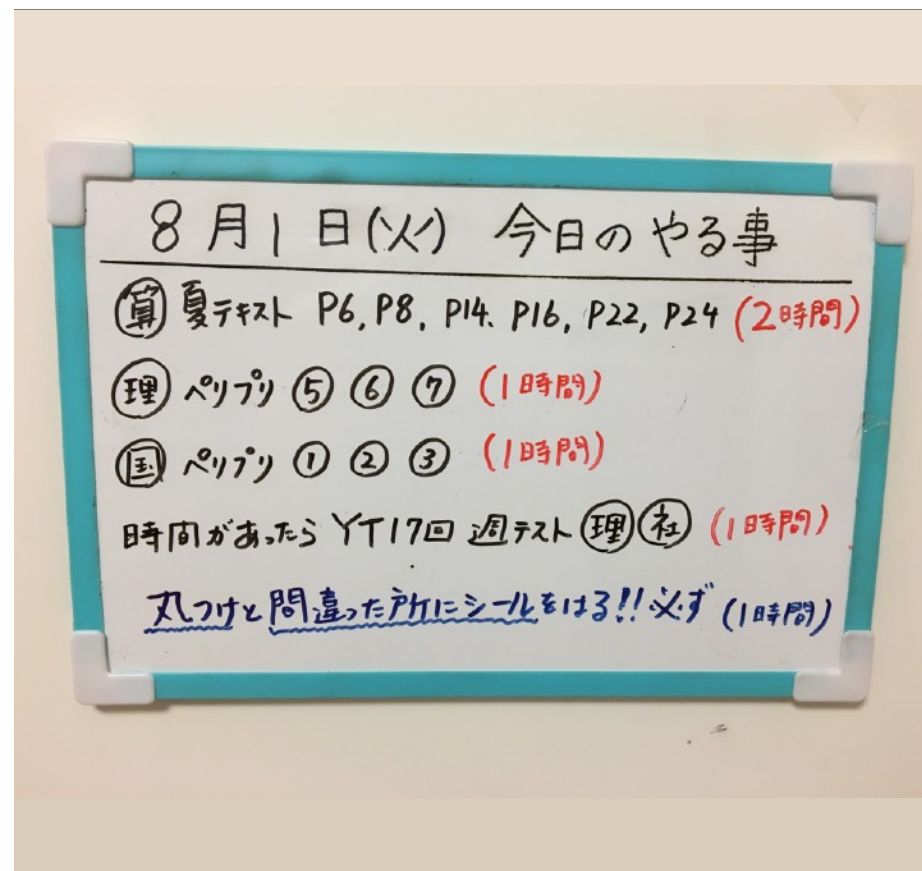 8月1日(火) 今日のやる事
算 夏テキスト P6, P8, P14、P16, P22, P24 (2時間)
理 ペリプリ ⑤ ⑥ ⑦ (1時間)
国 ペリプリ ① ② ③ (1時間)
時間があったら YT17回 週テスト 理 社 (1時間)
丸つけと間違った所にシールをはる!!必ず (1時間)